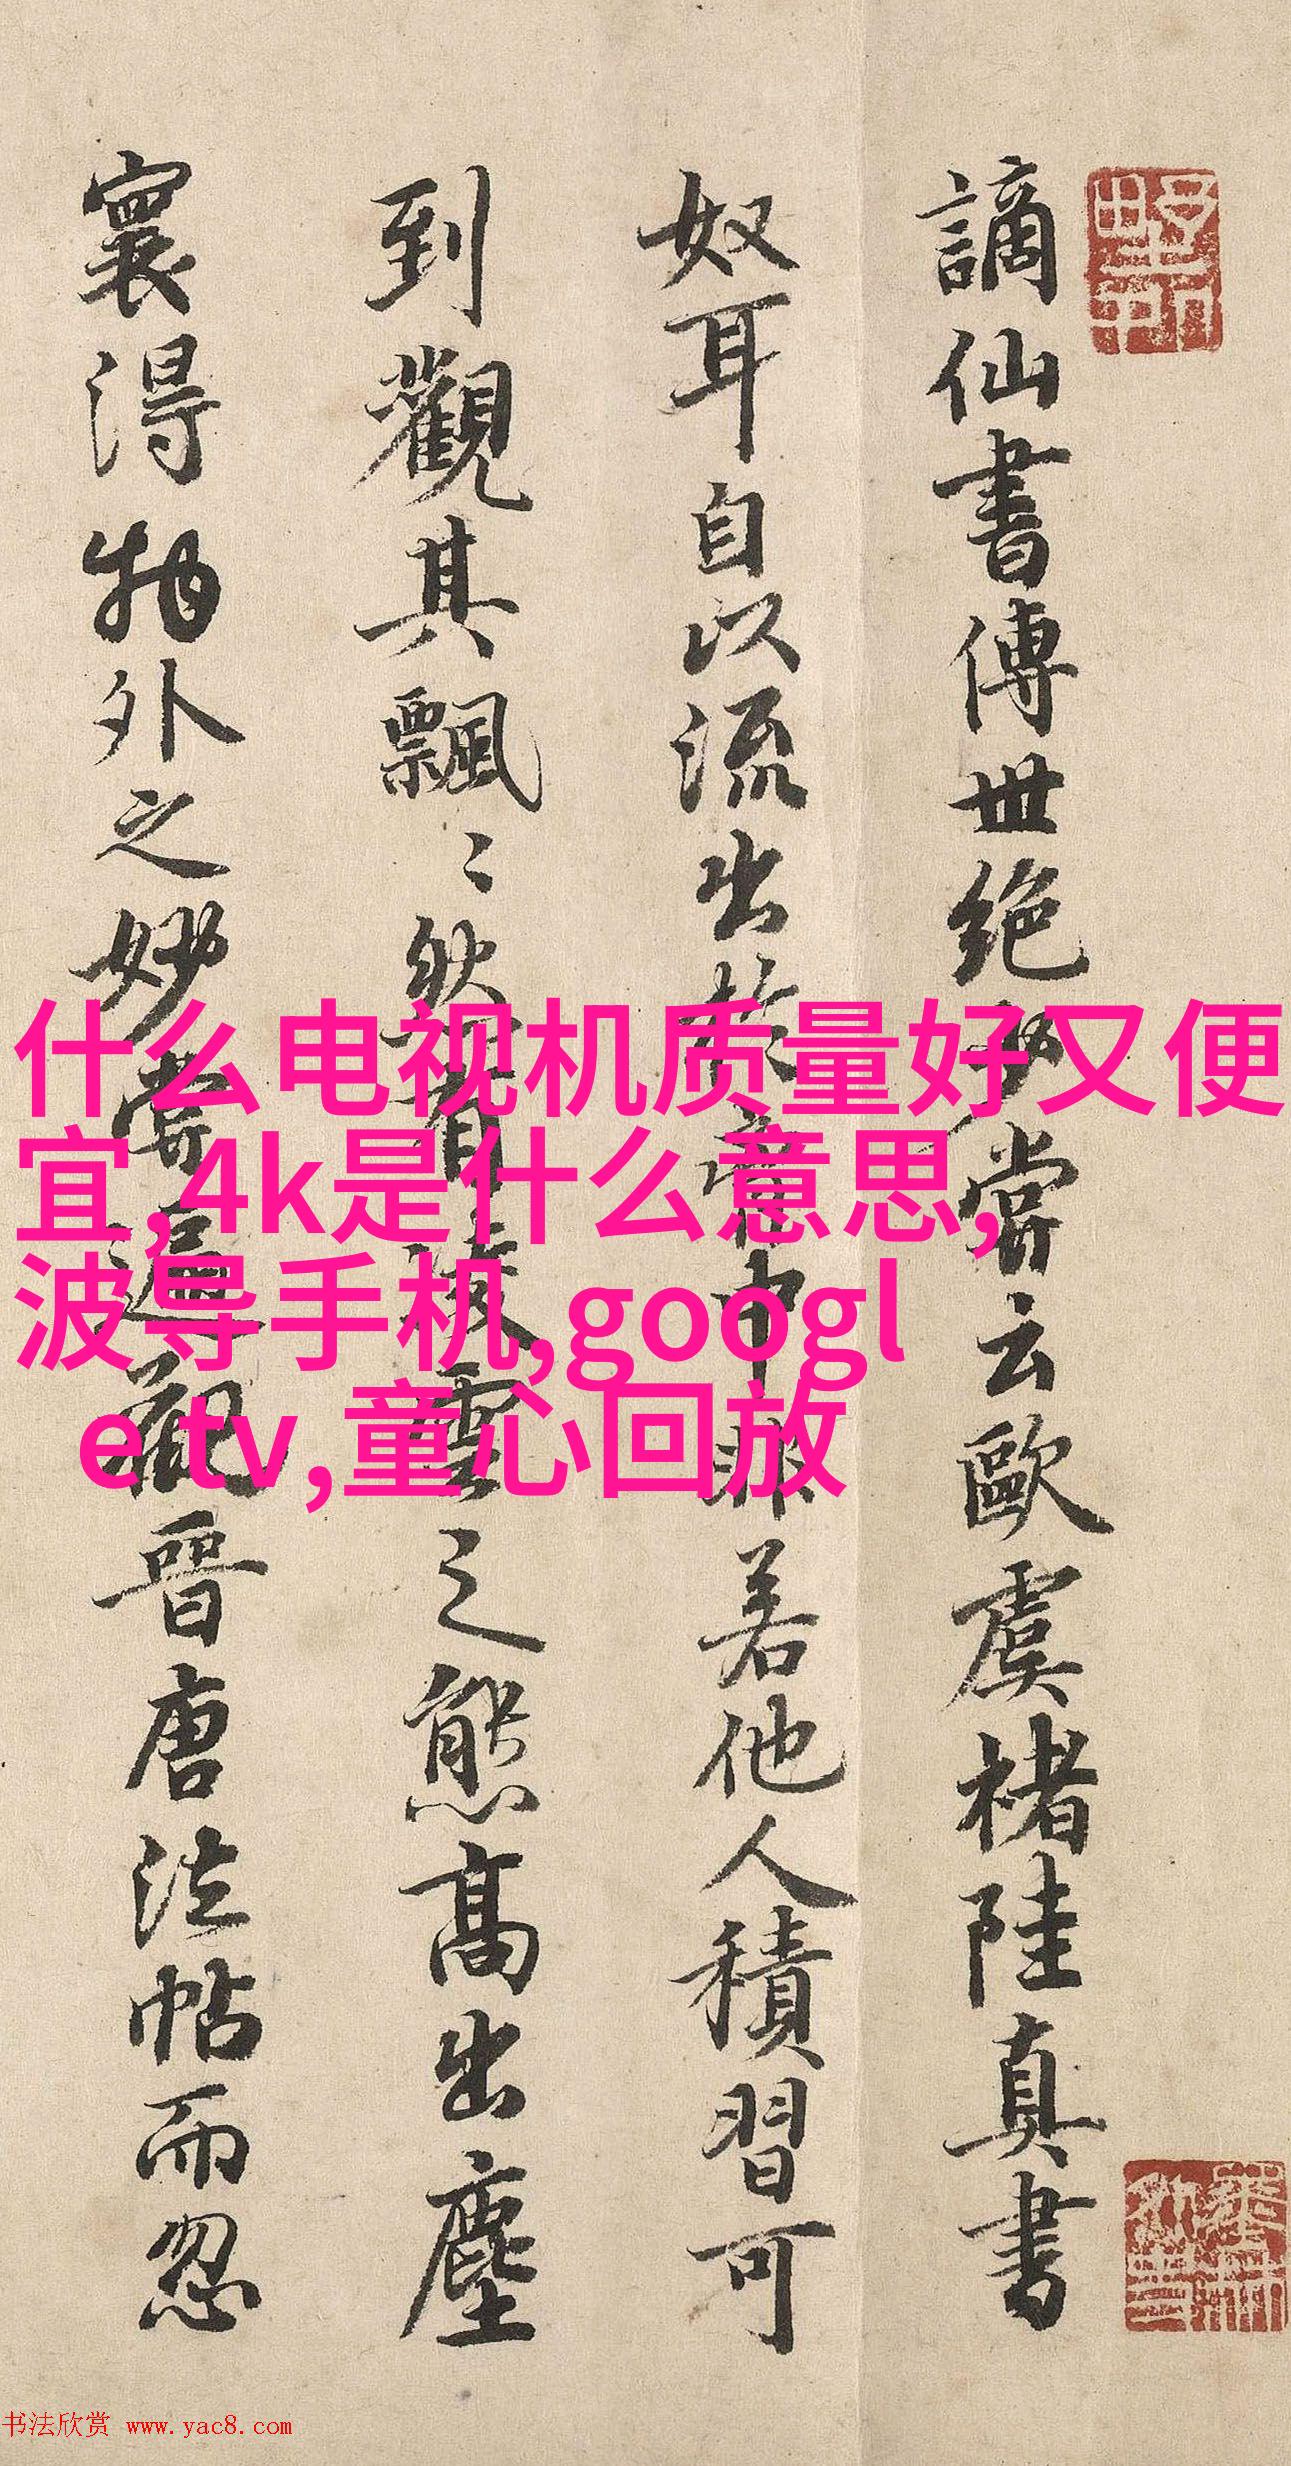 謫仙書傳世絕少嘗云歐虞褚陸真書
奴耳自以流出於中非若他人積習可
到觀其飄〻然有凌雲之態高出塵
寰得物外之妙嘗遍觀晉唐法帖而忽
什么电视机质量好又便
宜,4k是什么意思,
波导手机,googl
e tv,童心回放
书法欣赏 www.yac8.com